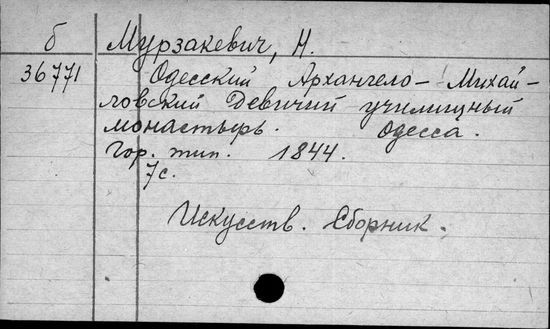 б Мурзакевич, Н.
36771 Одесский Архангело- Михай-
ловский Девичий училищный
монастырь. Одесса.
Гор. тип. 1844.
7с.
Искусств. Сборник.